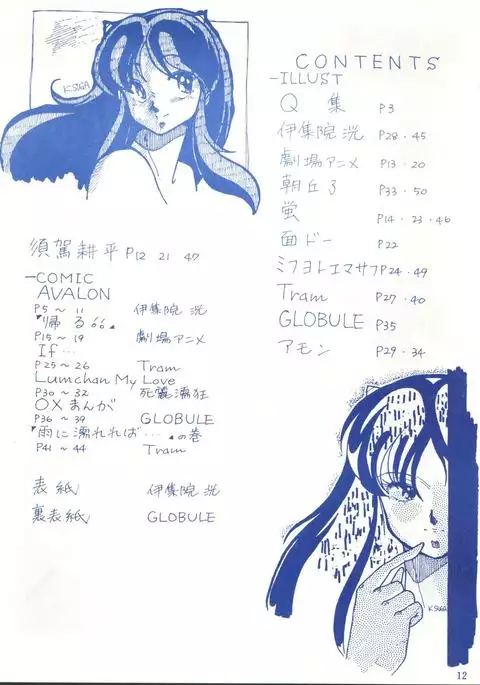 K.SUGA
CONTENTS
ーILLUST
Q 集 P3
伊集院 洸 P28・45
劇場アニメ P13・20
朝丘 3 P33・50
蛍 P14・23・46
面ドー P22
ミフヨトエマサフ P24・49
Tram P27・40
GLOBULE P35
アモン P29・34
須駕耕平 P12 21 47
ーCOMIC
AVALON
P5 ～ 11 伊集院 洸
『帰る
P15 ～ 19 劇場アニメ
If…
P25 ～ 26 Tram
Lumchan My Love
P30 ～ 32
OXまんが
P36 ～ 39 GLOBULE
『雨に濡れれば…』の巻
P41 ～ 44 Tram
表紙 伊集院 洸
裏表紙 GLOBULE
K.SUGA
12